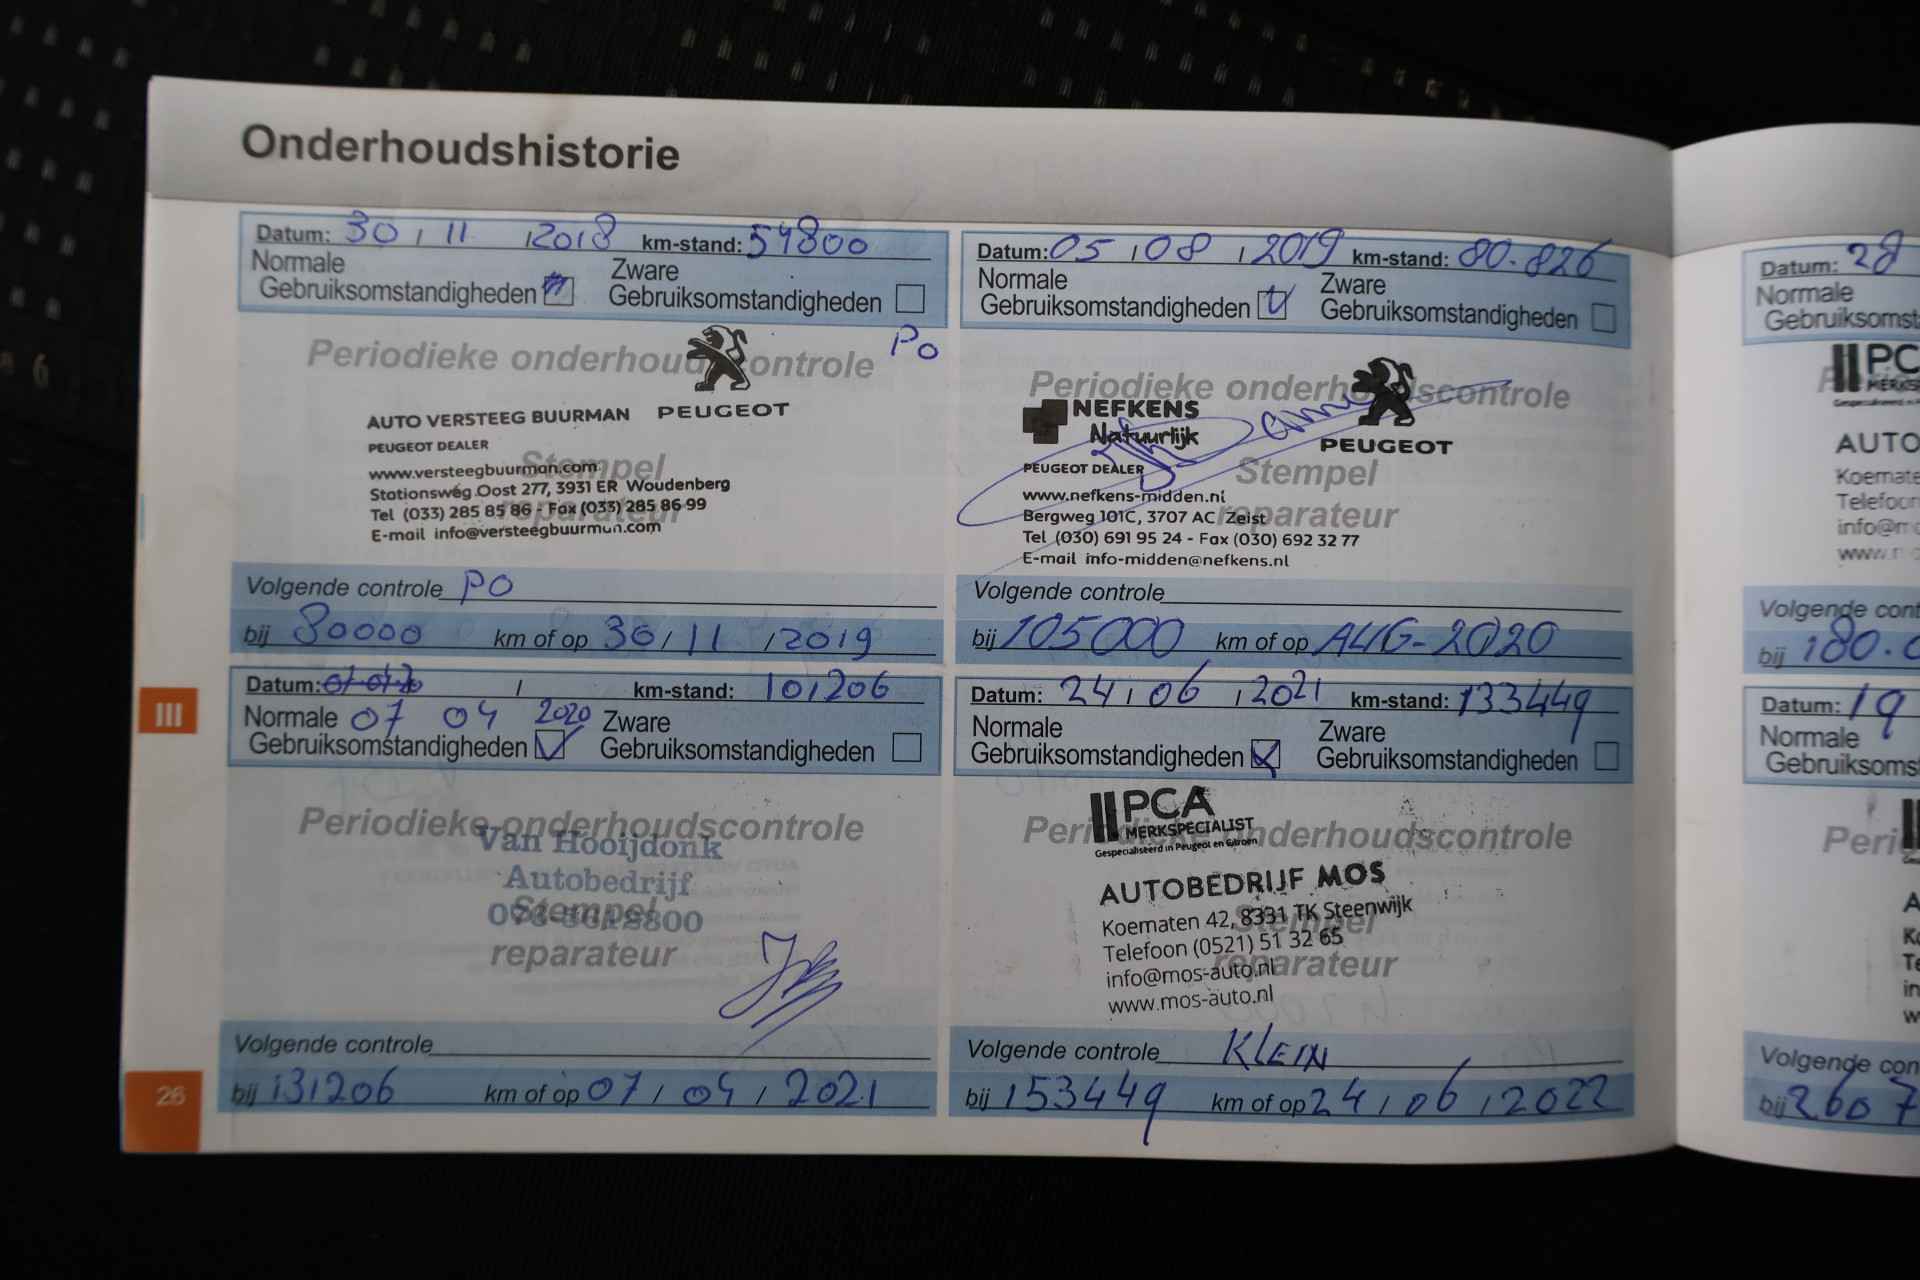 Onderhoudshistorie
Datum: 30 / 11 / 2018 km-stand: 54800
Normale
Gebruiksomstandigheden
Zware
Gebruiksomstandigheden
PO
Periodieke onderhoudscontrole
PEUGEOT
AUTO VERSTEEG BUURMAN
PEUGEOT DEALER
Stempel
www.versteegbuurman.com
Stationsweg Oost 277, 3931 ER Woudenberg
reparateur
Tel (033) 285 85 86 - Fax (033) 285 86 99
E-mail info@versteegbuurman.com
Volgende controle PO
bij 80000 km of op 30 / 11 / 2019
Datum: 05 / 08 / 2019 km-stand: 80.826
Normale
Gebruiksomstandigheden
Zware
Gebruiksomstandigheden
Periodieke onderhoudscontrole
NEFKENS
Natuurlijk
PEUGEOT
PEUGEOT DEALER
Stempel
www.nefkens-midden.nl
reparateur
Bergweg 101C, 3707 AC Zeist
Tel (030) 691 95 24 - Fax (030) 692 32 77
E-mail info-midden@nefkens.nl
Volgende controle
bij 105000 km of op AUG-2020
III
Datum: 07-04-20 / km-stand: 101206
Normale 07 04 2020
Gebruiksomstandigheden
Zware
Gebruiksomstandigheden
Periodieke onderhoudscontrole
Van Hooijdonk
Autobedrijf
Stempel
reparateur
Volgende controle
bij 131206 km of op 07 / 04 / 2021
26
Datum: 24 / 06 / 2021 km-stand: 133449
Normale
Gebruiksomstandigheden
Zware
Gebruiksomstandigheden
Periodieke onderhoudscontrole
PCA
MERKSPECIALIST
Gespecialiseerd in Peugeot en Citroën
AUTOBEDRIJF MOS
Koematen 42, 8331 TK Steenwijk
Stempel
Telefoon (0521) 51 32 65
reparateur
info@mos-auto.nl
www.mos-auto.nl
Volgende controle KLEIN
bij 153449 km of op 24 / 06 / 2022
Datum: 28
Normale
Gebruiksomst
PC
MERKS
AUTO
Koemate
Telefoon
info@m
www.
Volgende cont
bij 180.0
Datum: 19
Normale
Gebruiksoms
Peri
Volgende con
bij 2607